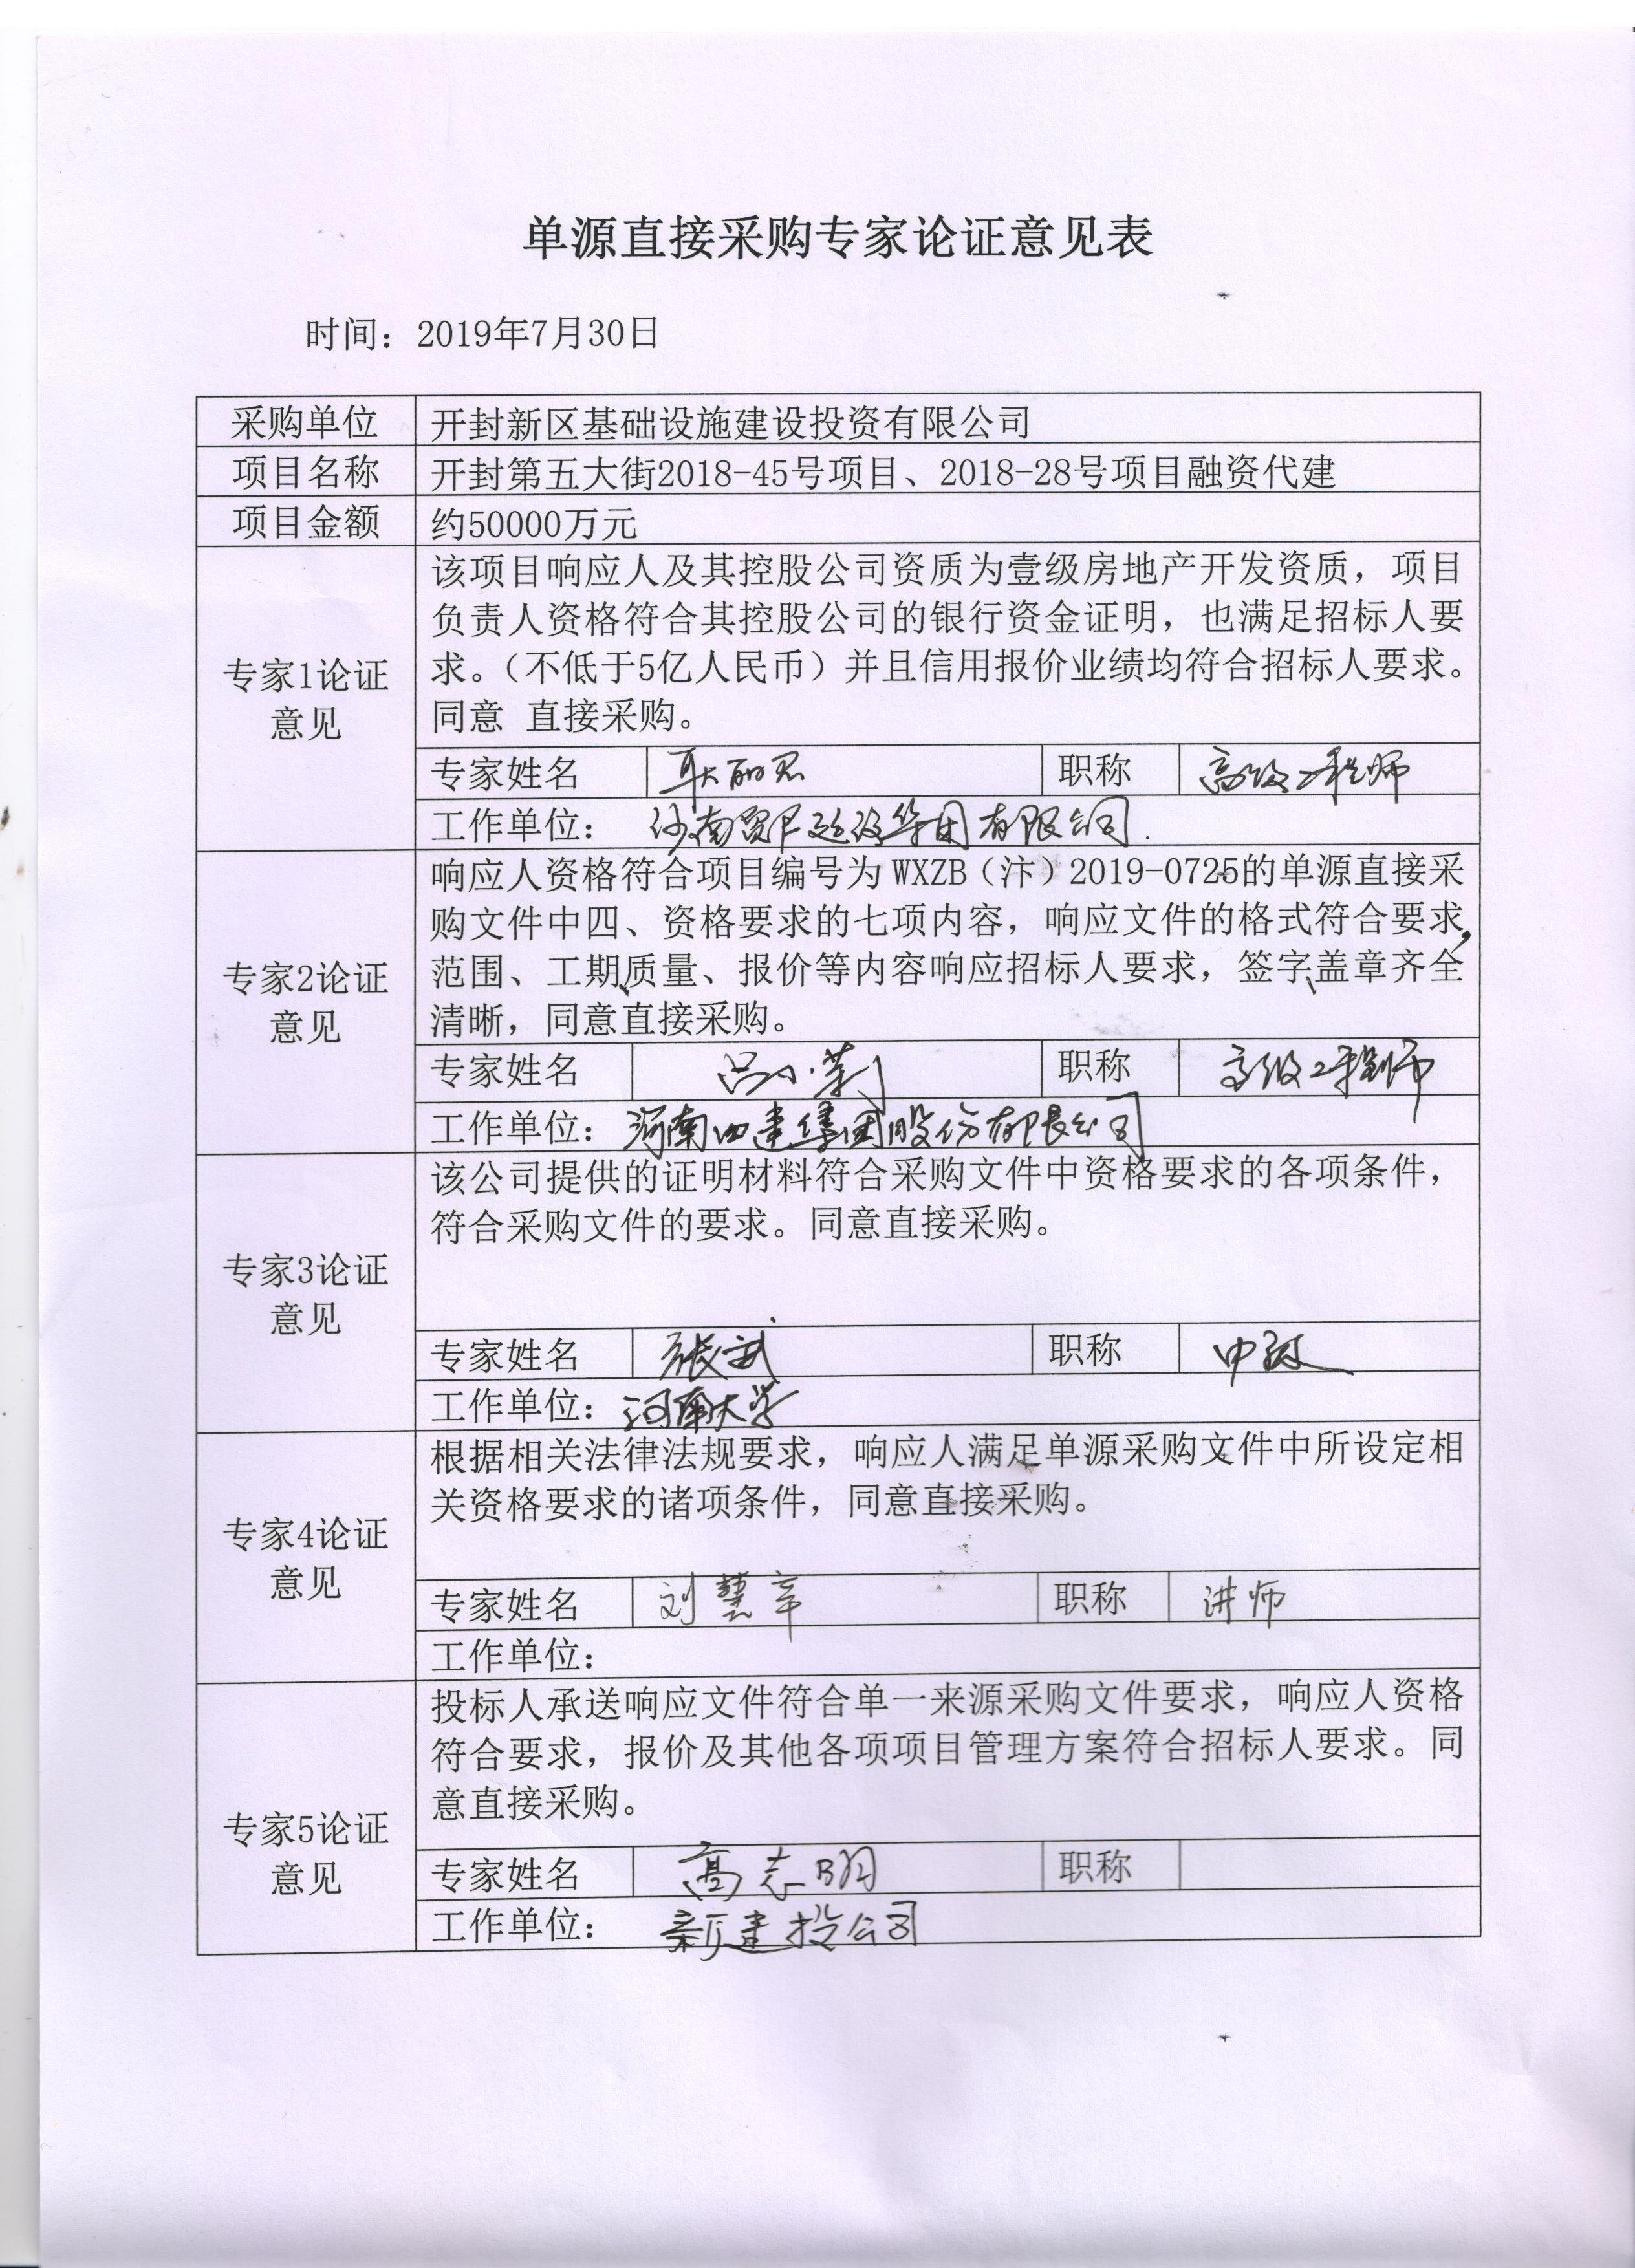 单源直接采购专家论证意见表
时间：2019年7月30日
采购单位 开封新区基础设施建设投资有限公司
项目名称 开封第五大街2018-45号项目、2018-28号项目融资代建
项目金额 约50000万元
专家1论证意见
该项目响应人及其控股公司资质为壹级房地产开发资质，项目
负责人资格符合其控股公司的银行资金证明，也满足招标人要
求。（不低于5亿人民币）并且信用报价业绩均符合招标人要求。
同意 直接采购。
专家姓名 职称 高级工程师
工作单位： 建设集团有限公司
专家2论证意见
响应人资格符合项目编号为WXZB（汴）2019-0725的单源直接采
购文件中四、资格要求的七项内容，响应文件的格式符合要求，
范围、工期、质量、报价等内容响应招标人要求，签字、盖章齐全
清晰，同意直接采购。
专家姓名 吕小莉 职称 高级工程师
工作单位：河南四建集团股份有限公司
专家3论证意见
该公司提供的证明材料符合采购文件中资格要求的各项条件，
符合采购文件的要求。同意直接采购。
专家姓名 张武 职称 中级
工作单位：河南大学
专家4论证意见
根据相关法律法规要求，响应人满足单源采购文件中所设定相
关资格要求的诸项条件，同意直接采购。
专家姓名 刘慧 职称 讲师
工作单位：
专家5论证意见
投标人承送响应文件符合单一来源采购文件要求，响应人资格
符合要求，报价及其他各项项目管理方案符合招标人要求。同
意直接采购。
专家姓名 高志明 职称
工作单位： 新建投公司